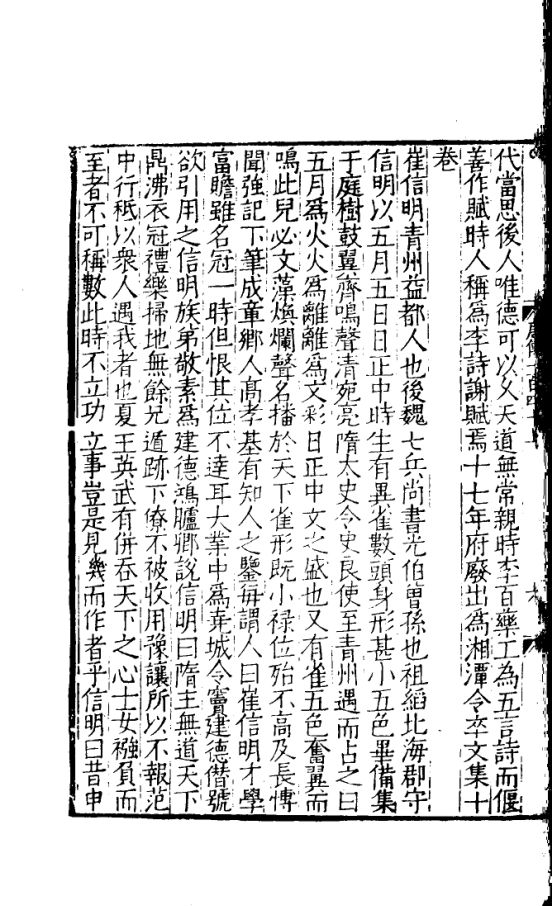 代當思後人唯德可以久天道無常親時李百藥工為五言詩而偃
善作賦時人稱爲李詩謝賦焉十七年府廢出爲湘潭令卒文集十
卷
崔信明青州益都人也後魏七兵尚書光伯曽孫也祖縚北海郡守
信明以五月五日日正中時生有異雀數頭身形甚小五色畢備集
于庭樹鼓翼齊鳴聲清宛亮隋太史令史良使至青州遇而占之曰
五月爲火火爲離離爲文彩日正中文之盛也又有雀五色奮翼而
鳴此兒必文藻煥爛聲名播於天下雀形旣小禄位殆不高及長博
聞強記下筆成章鄉人髙孝基有知人之鑒每謂人曰崔信明才學
富贍雖名冠一時但恨其位不達耳大業中爲尭城令竇建德僭號
欲引用之信明族弟敬素爲建德鴻臚卿説信明曰隋主無道天下
鼎沸衣冠禮樂掃地無餘兄遁跡下僚不被收用豫讓所以不報范
中行秪以衆人遇我者也夏王英武有併吞天下之心士女襁負而
至者不可稱數此時不立功立事豈是見幾而作者乎信明曰昔申